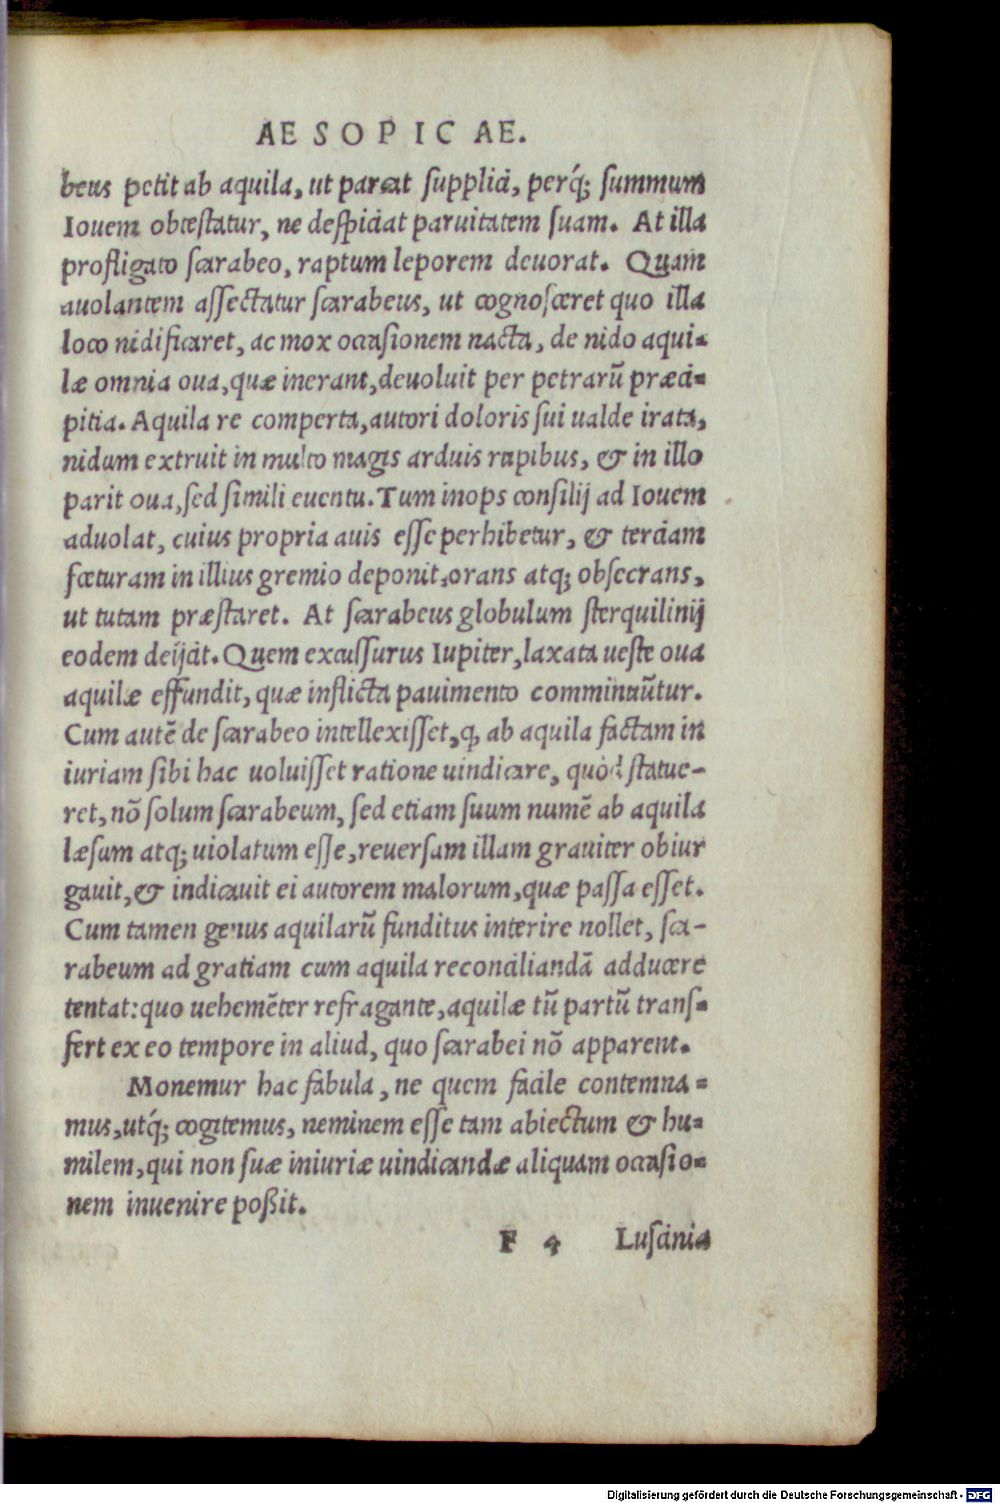 AESOPICAE.
beus petit ab aquila, ut parcat supplici, perq́; summum
Iouem obtestatur, ne despiciat paruitatem suam. At illa
profligato scarabeo, raptum leporem deuorat. Quam
auolantem assectatur scarabeus, ut cognosceret quo illa
loco nidificaret, ac mox occasionem nacta, de nido aqui-
læ omnia oua, quæ inerant, deuoluit per petrarũ præci-
pitia. Aquila re comperta, autori doloris sui ualde irata,
nidum extruit in multo magis arduis rupibus, & in illo
parit oua, sed simili euentu. Tum inops consilij ad Iouem
aduolat, cuius propria auis esse perhibetur, & terciam
fœturam in illius gremio deponit, orans atq; obsecrans,
ut tutam præstaret. At scarabeus globulum sterquilinij
eodem deijcit. Quem excussurus Iupiter, laxata ueste oua
aquilæ effundit, quæ inflicta pauimento comminuũtur.
Cum autẽ de scarabeo intellexisset, ꝙ ab aquila factam in
iuriam sibi hac uoluisset ratione uindicare, quòd statue-
ret, nõ solum scarabeum, sed etiam suum numẽ ab aquila
læsum atq; uiolatum esse, reuersam illam grauiter obiur
gauit, & indicauit ei autorem malorum, quæ passa esset.
Cum tamen genus aquilarũ funditus interire nollet, sca-
rabeum ad gratiam cum aquila reconciliandã adducere
tentat: quo uehemẽter refragante, aquilæ tũ partũ trans-
fert ex eo tempore in aliud, quo scarabei nõ apparent.
Monemur hac fabula, ne quem facile contemna-
mus, utq́; cogitemus, neminem esse tam abiectum & hu-
milem, qui non suæ iniuriæ uindicandæ aliquam occasio-
nem inuenire poßit.
F 4 Luscinia
Digitalisierung gefördert durch die Deutsche Forschungsgemeinschaft - DFG